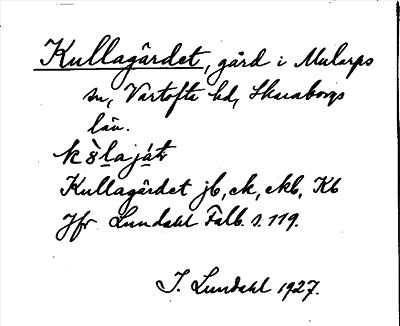 Kullagärdet, gård i Mularps
sn, Vartofta hd, Skaraborgs
län.
Kullagärdet jb, ek, ekb, Kb
Jfr Lundahl Falb. s. 119.
I. Lundahl 1927.